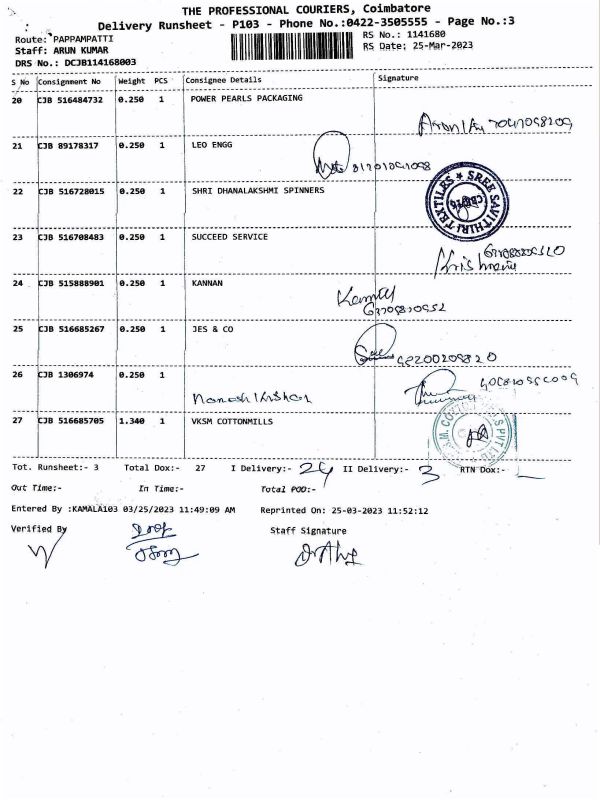 THE PROFESSIONAL COURIERS, Coimbatore
Delivery Runsheet - P103 - Phone No.:0422-3505555 - Page No.:3
Route: PAPPAMPATTI
RS No.: 1141680
Staff: ARUN KUMAR
RS Date: 25-Mar-2023
DRS No.: DCJB114168003
S No Consignment No Weight PCS Consignee Details Signature
20 CJB 516484732 0.250 1 POWER PEARLS PACKAGING
21 CJB 89178317 0.250 1 LEO ENGG
22 CJB 516728015 0.250 1 SHRI DHANALAKSHMI SPINNERS
SREE SAVITHIRI TEXTILES
23 CJB 516708483 0.250 1 SUCCEED SERVICE
24 CJB 515888901 0.250 1 KANNAN
25 CJB 516685267 0.250 1 JES & CO
26 CJB 1306974 0.250 1
27 CJB 516685705 1.340 1 VKSM COTTONMILLS
Tot. Runsheet:- 3 Total Dox:- 27 I Delivery:- 24 II Delivery:- 3 RTN Dox:-
Out Time:- In Time:- Total POD:-
Entered By :KAMALA103 03/25/2023 11:49:09 AM Reprinted On: 25-03-2023 11:52:12
Verified By Staff Signature